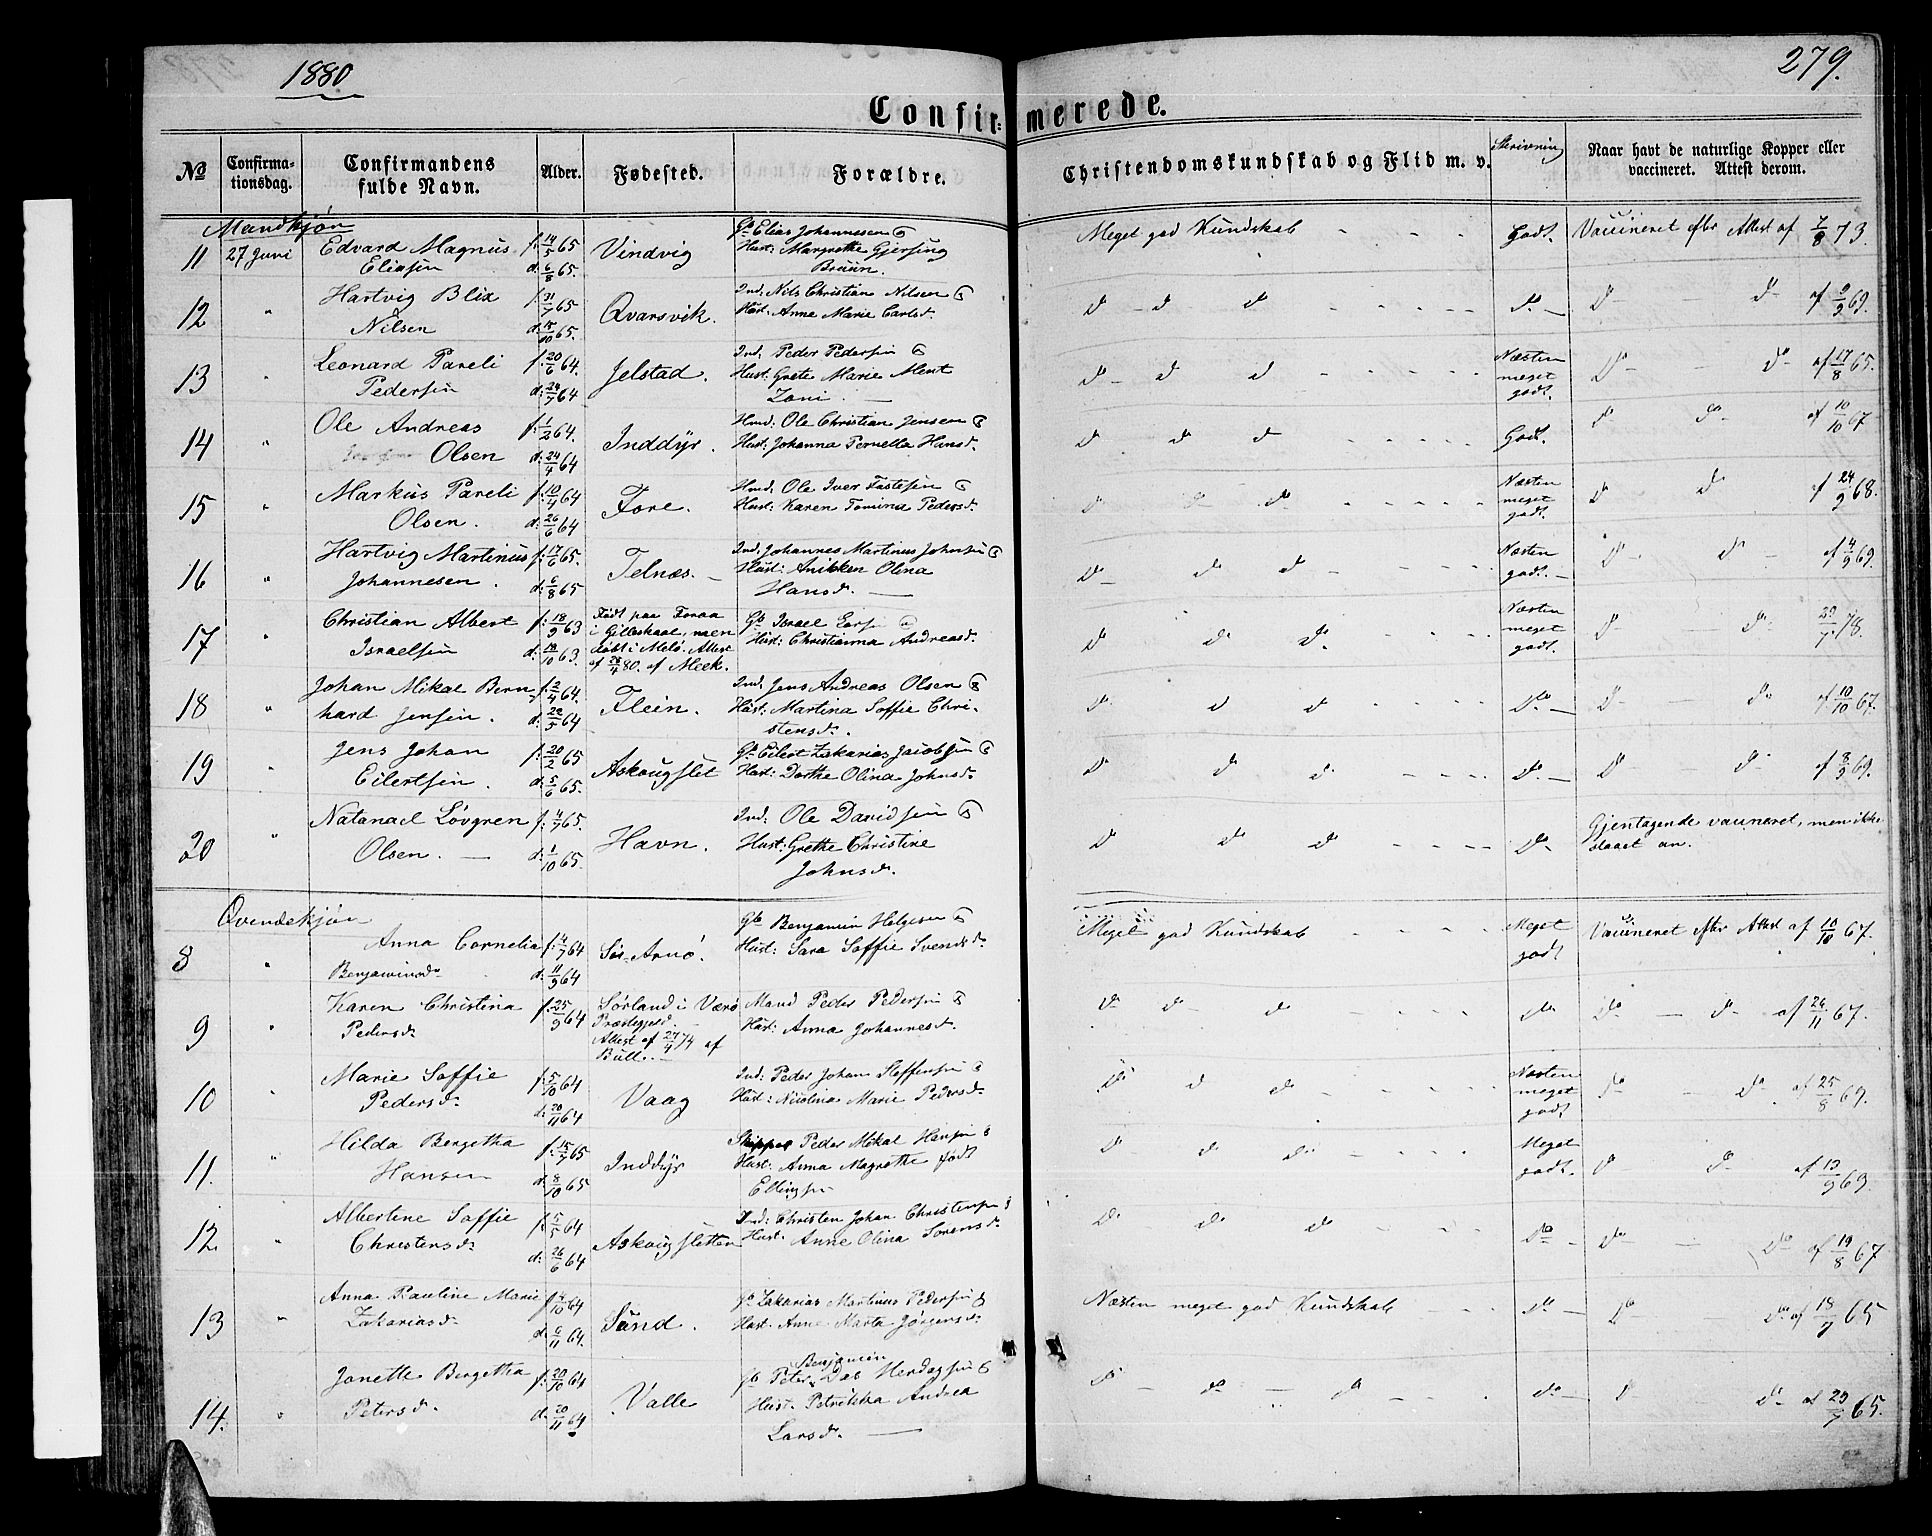 1880
279.
Confirmerede.
No
Confirmationsdag.
Confirmandens fulde Navn.
Alder.
Fødested.
Forældre.
Christendomskundskab og Flid m. v.
Skrivning
Naar havt de naturlige Kopper eller vaccineret. Attest derom.
Mandkjøn
11 27 Juni Edvard Magnus f. 14/5 65 Vindvig Gb Elias Johannesen Meget god Kundskab - - - - Godt. Vaccineret efter Attest af 7/8 73.
Eliasen d. 6/8 65. Hust: Margrethe Gjersing
Bruun.
12 " Hartvig Blix f. 31/7 65 Qvarsvik. Ind: Nils Christian Nilsen Do - Do Do - - - - Do - Do Do af 9/9 69.
Nilsen d. 15/10 65. Hust: Anne Marie Carlsd.
13 " Leonard Pareli f. 20/6 64. Jelstad. Ind: Peder Pedersen Do - Do Do - - - - Næsten meget godt. Do - Do af 17/8 65.
Pedersen d. 24/7 64 Hust: Grete Marie Ment
Zoni.
14 " Ole Andreas f. 1/2 64. Inddyr. Hmd: Ole Christian Jensen Do Do Do - - - - Godt. Do Do af 10/10 67
Olsen d. 24/4 64 Hust: Johanna Pernella Hansd.
15 " Markus Pareli f. 10/4 64 Fore. Hmd: Ole Iver Fastesen Do Do Do - - - - Næsten meget godt. Do Do af 24/9 68.
Olsen. d. 26/6 64 Hust: Karen Tomina Pedersd.
16 " Hartvig Martinus f. 17/6 65. Telnæs. Ind: Johannes Martinus Johnsen Do - Do Do - - - - Næsten godt. Do - Do - af 4/9 69.
Johannesen. d. 6/8 65 Hust: Anikken Olina
Hansd.
17 " Christian Albert f. 18/9 63 Født paa Foraa Gb Israel Do Do Do - - - - Næsten meget godt. Do - Do 29/7 78.
Israelsen d. 18/10 63. i Gilleskaal, men Hust: Christianna Andreasd.
døbt i Melø. Attest
af 80. af Meek.
18 " Johan Mikal Bern- f. 2/4 64. Flein. Ind: Jens Andreas Olsen Do Do Do - - - - Do - Do - Do af 10/10 67.
hard Jensen. d. 29/5 64 Hust: Martina Soffie Chri-
stensd.
19 " Jens Johan f. 20/2 65 Askougslet Gb Eilert Zakarias Jacobsen Do Do Do - - - - Do - Do - Do - af 8/9 69.
Eilertsen. d. 5/6 65. Hust: Dorthe Olina Johnsd.
20 " Natanael Løvgren f. 4/7 65. Havn. Ind: Ole Davidsen Do Do Do Do - Gjentagende vaccineret, men ikke
Olsen. d. 1/10 65. Hust: Grethe Christine slaaet an.
Johnsd.
Qvindekjøn
8 " Anna Cornelia f. 4/7 64 Sør-Arnø. Gb Benjamin Helgesen Meget god Kundskab - - - - Meget godt Vaccineret efter Attest af 10/10 67.
Benjaminsd. d. 11/9 64 Hust: Sara Soffie Svendsd.
9 " Karen Christina f. 25/9 64 Sørland i Værø Mand Peder Pedersen Do Do Do - - - - Do Do - Do af 24/11 67.
Pedersd. Præstegjeld. Hust: Anna Johannesd.
Attest af 27/4 74 af
Bull.
10 " Marie Soffie f. 5/10 64 Vaag Ind: Peder Johan Steffensen Do Do Do - - - - Næsten meget godt Do - Do af 25/8 69.
Pedersd. d. 20/11 64 Hust: Nicolina Marie Pedersd.
11. " Hilda Bergetha f. 15/7 65 Inddyr Skipper Peder Mikal Hansen Do Do Do - - - - Meget godt. Do - Do af 13/9 69.
Hansen d. 8/10 65 Hust: Anna Magrethe født
Ellingsen
12. " Albertine Soffie f. 5/5 64 Askougsletten Ind: Christen Johan Christensen Do Do Do - - - - Do - Do - Do af 19/8 67
Christensd. d. 26/6 64 Hust: Anne Olina Sorensd.
13 " Anna Pauline Marie f. 4/10 64 Sund. Gb Zakarias Martinus Pedersen Næsten meget god Kundskab - - - Do - Do - Do af 18/7 65
Zakariasd. d. 6/11 64. Hust: Anne Marta Jørgensd.
14. " Jonette Bergetha f. 20/10 64 Valle Gb Peter Benjamin Das Hendagsen Do - Do - Do - - - Do - Do Do af 29/7 65.
Petersd. d. 20/11 64 Hust: Petrikka Andrea
Larsd.